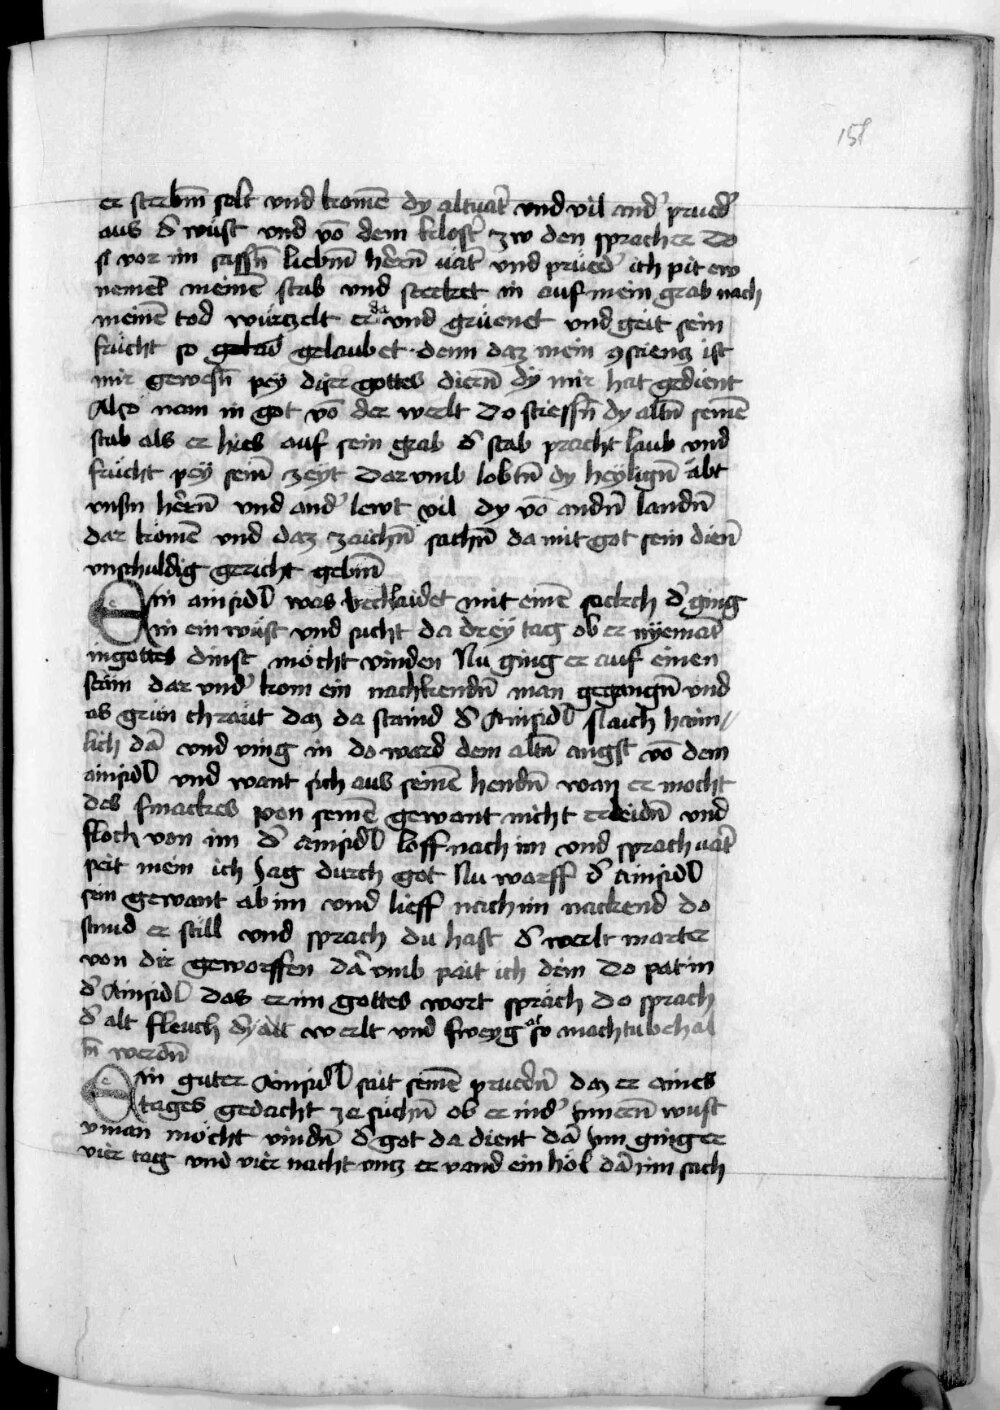 158
er sterbm̄ solt vnd komē dy altuat̾ vnd vil and̾ prued̾
aus d̾ wüst vnd vō dem klost̾ zw den sprach er Do
si vor im sassn̄ liebm̄ hērn̄ vät̾ vnd prüed̾ ich pit ew
nemet meinē stab vnd steckct in auf mein grab nach
meinē tod würczelt er da vnd grüenet vnd geit sein
frücht so gelaubet denn daz mein ꝯscienz ist
mir gewesn̄ pey diser gottes diern̄ dy mir hat gedient
Also nam in got vō der werlt Do stiessn̄ dy altn̄ seinē
stab als er hies auf sein grab d̾ stab pracht laub vnd
frücht pey seinr̄ zeyt Dar vmb lobtn̄ dy heyligm̄ äbt
vnsm̄ hērn̄ vnd and̾ lewt vil dy vō andn̄ landn̄
dar komē vnd daz zaichn̄ sachn̄ da mit got sein dien̄
vnschuldig gericht gebm̄
Ein ainsidl was bechlaidet mit einē sackch d̾ ging
in ein wüst vnd sucht da drey tag ob er nyemāt
in gottes dinst möcht vinden Nu ging er auf einen
stain dar vnd̾ kom ein nachkendn̄ man gegangn̄ vnd
as grün chraut daz da stuind d̾ Ainsidl slaich haim//
lich dā vnd ving in do ward dem altn̄ angst vō dem
ainsidl vnd want sich aus seinē hendn̄ wan er mocht
des smackes von seinē gewant nicht erleidn̄ vnd
floch von im d̾ ainsidl loff nach im vnd sprach vat̾
peit mein ich Jag durch got Nu warff d̾ ainsidl
sein gewant ab im vnd lieff nach im nackend do
stuud er still vnd sprach du hast d̾ werlt marter
von dir geworffen dā vmb pait ich dein Do pat in
d̾ Ainsidl das er im gottes wort spräch do sprach
d̾ alt fleuch dy werlt vnd sweyg so machtu behal
tn̄ werdn̄
Ein guter Ainsidl sait seinē pruedn̄ daz er aines
tages gedacht ze suchn̄ ob er in d̾ ynnern̄ wust
yman möcht vindn̄ d̾ got da dient dā ynn ging er
vier tag vnd vier nacht vncz er vand ein höl dā inn sach